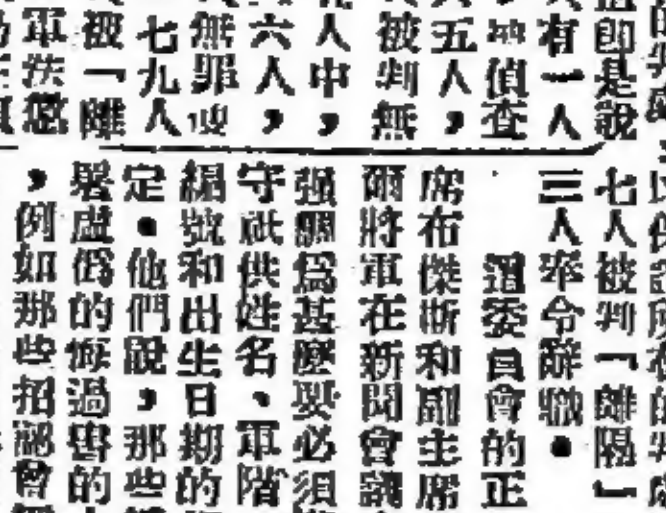 即是說
有一人
偵查
五人，
被判無
人中，
六人，
無罪
七九人
被「離
軍
七人被判「離隔」
三人奉令辭職．
這委員會的正
席布傑斯和副主席
爾將軍在新聞會議
强調爲甚麽要必須
守祇供姓名、軍階
編號和出生日期的
定．他們說，那些
署虛僞的悔過書的
，例如那些招認曾